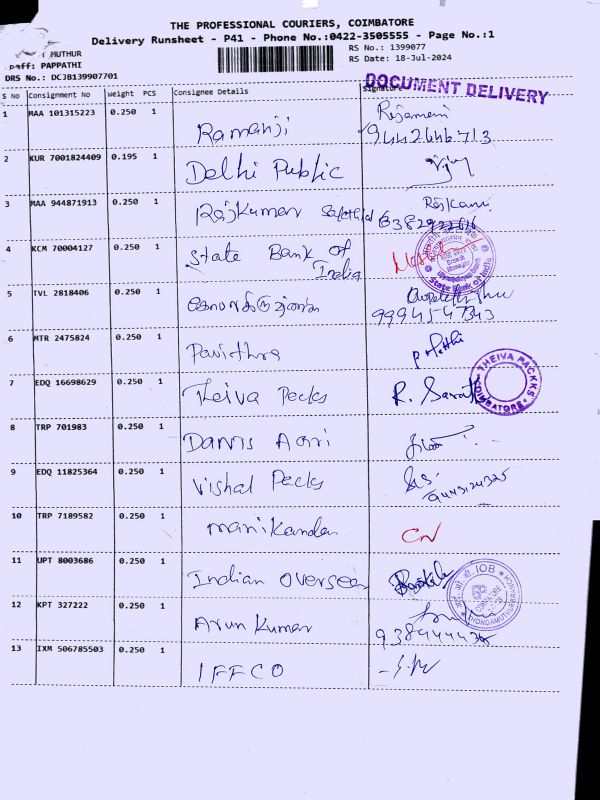 THE PROFESSIONAL COURIERS, COIMBATORE
Delivery Runsheet - P41 - Phone No.:0422-3505555 - Page No.:1
MUTHUR
RS No.: 1399077
aff: PAPPATHI
RS Date: 18-Jul-2024
DRS No.: DCJB139907701
DOCUMENT DELIVERY
S No Consignment No Weight PCS Consignee Details Signature
1 MAA 101315223 0.250 1 Ramanji
9442646713
2 KUR 7001824409 0.195 1 Delhi Public Vijay
3 MAA 944871913 0.250 1 Rajkumar
4 KCM 70004127 0.250 1 State Bank of
India
State Bank of India
5 TVL 2818406 0.250 1
9994547343
6 MTR 2475824 0.250 1 Pavithra
7 EDQ 16698629 0.250 1 Theiva Packs R. Sarath
THEIVA PACKKS
COIMBATORE
8 TRP 701983 0.250 1
9 EDQ 11825364 0.250 1 Vishal Packs
10 TRP 7189582 0.250 1 manikandan CN
11 UPT 8003686 0.250 1 Indian Overseas
IOB
12 KPT 327222 0.250 1 Arun Kumar
13 IXM 506785503 0.250 1 IFFCO